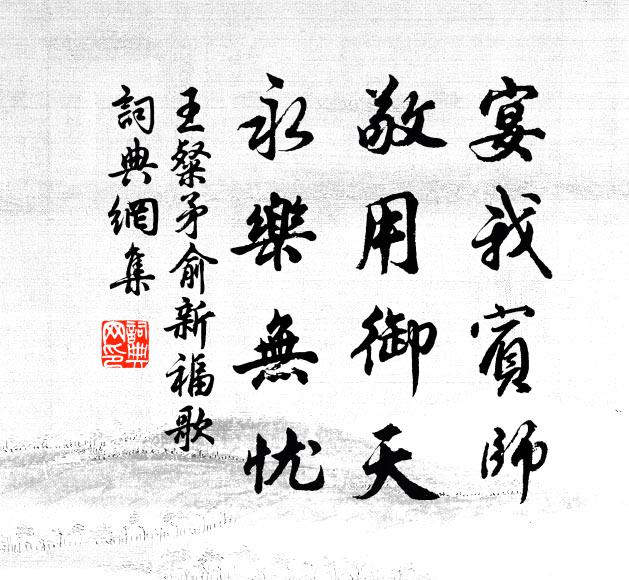 宴我賓師
敬用御天
永樂無忧
王粲矛俞新福歌
詞典網集
詞典
网印